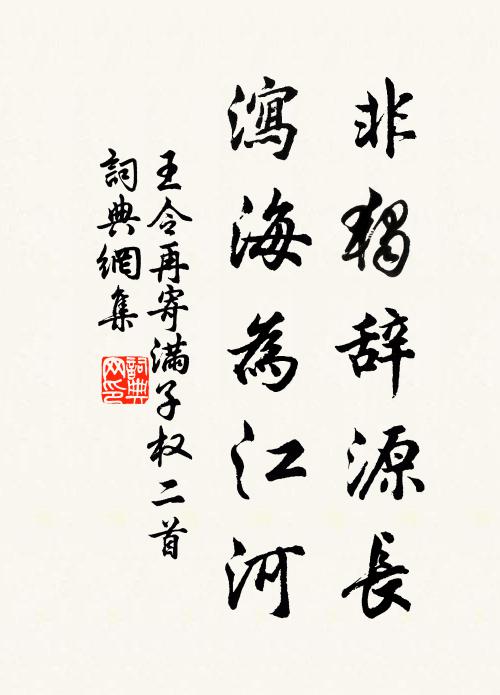 非獨辞源長
瀉海為江河
王令再寄滿子权二首
詞典網集
詞典网印